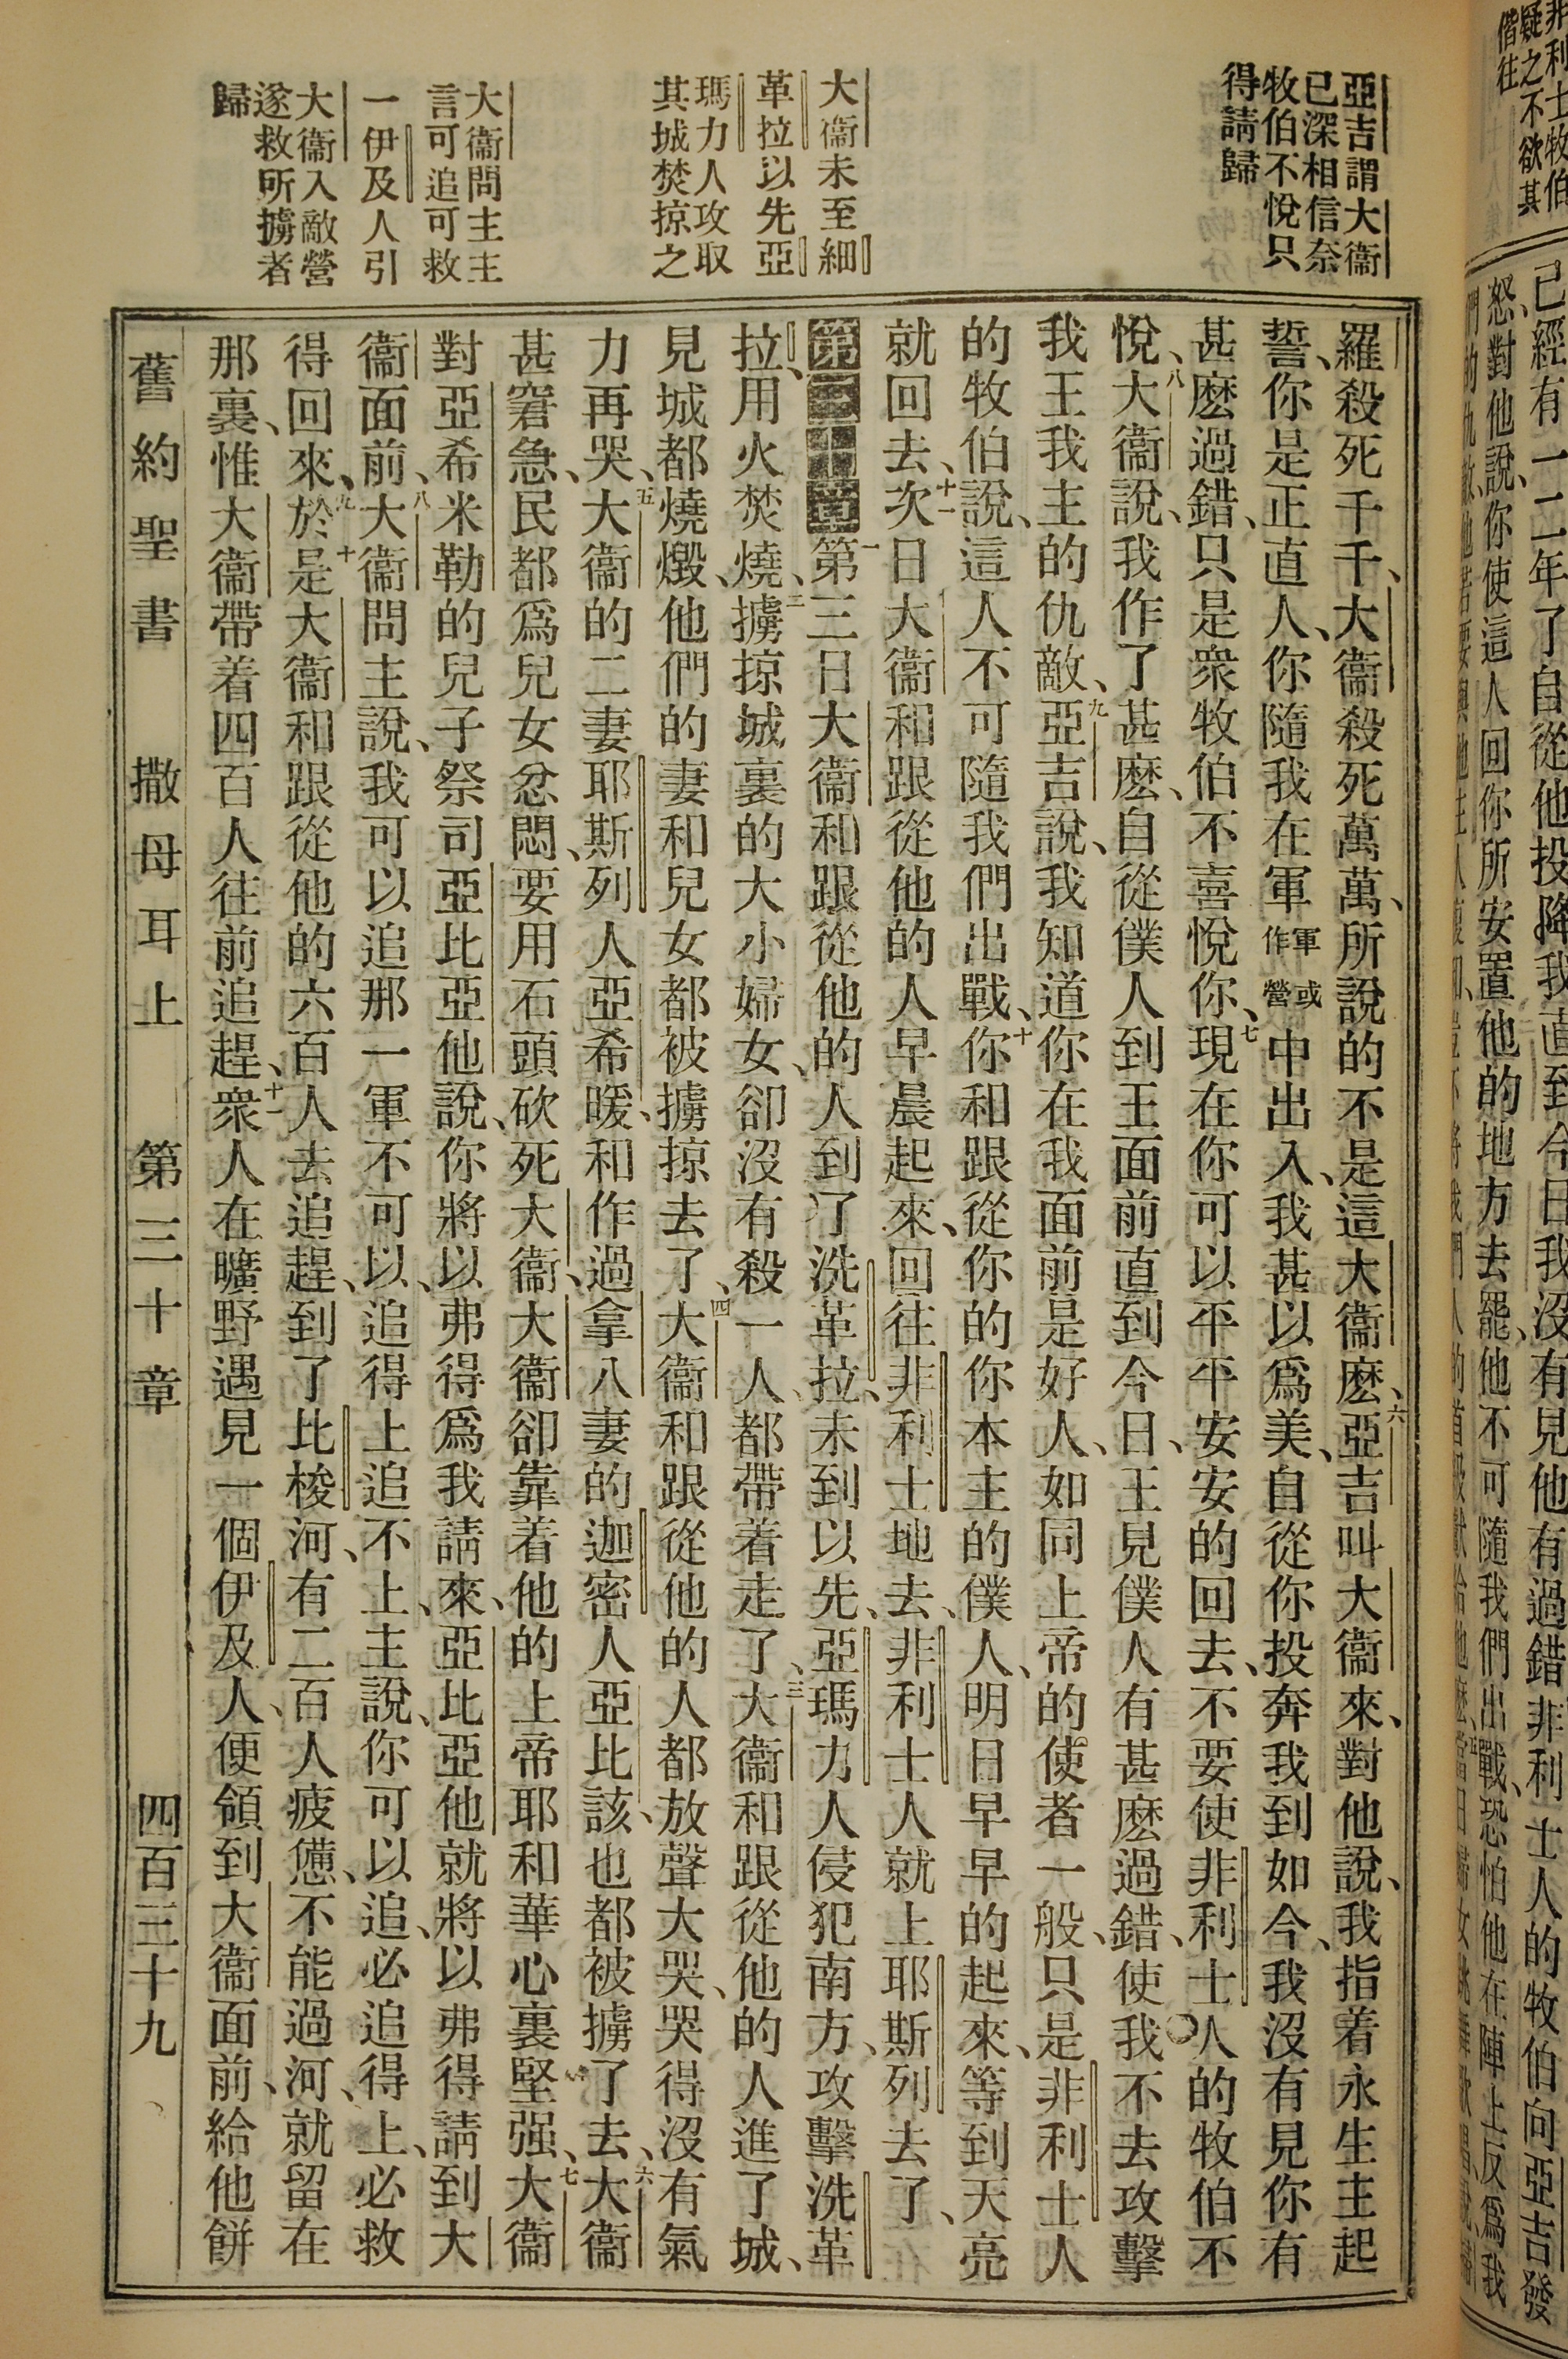 亞吉謂大衞
已深相信奈
牧伯不悅只
得請歸
大衞未至細
革拉以先亞
瑪力人攻取
其城焚掠之
大衞問主主
言可追可救
一伊及人引
大衞入敵營
遂救所擄者
歸
羅殺死千千、大衞殺死萬萬、所說的不是這大衞麽、六亞吉叫大衞來、對他說、我指着永生主起
誓、你是正直人、你隨我在軍軍或作營中出入、我甚以爲美、自從你投奔我到如今、我沒有見你有
甚麽過錯、只是衆牧伯不喜悅你、七現在你可以平平安安的回去、不要使非利士人的牧伯不
悅、八大衞說、我作了甚麽、自從僕人到王面前直到今日、王見僕人有甚麽過錯、使我不去攻擊
我王我主的仇敵、九亞吉說、我知道你在我面前是好人、如同上帝的使者一般、只是非利士人
的牧伯說、這人不可隨我們出戰、十你和跟從你的你本主的僕人、明日早早的起來、等到天亮
就回去、十一次日大衞和跟從他的人早晨起來、回往非利士地去、非利士人就上耶斯列去了、
第三十章一第三日大衞和跟從他的人到了洗革拉、未到以先、亞瑪力人侵犯南方、攻擊洗革
拉、用火焚燒、二擄掠城裏的大小婦女、卻沒有殺一人、都帶着走了、三大衞和跟從他的人進了城、
見城都燒燬、他們的妻和兒女都被擄掠去了、四大衞和跟從他的人都放聲大哭、哭得沒有氣
力再哭、五大衞的二妻耶斯列人亞希暖、和作過拿八妻的迦密人亞比該、也都被擄了去、六大衞
甚窘急、民都爲兒女忿悶、要用石頭砍死大衞、大衞卻靠着他的上帝耶和華心裏堅强、七大衞
對亞希米勒的兒子祭司亞比亞他說、你將以弗得爲我請來、亞比亞他就將以弗得請到大
衞面前、八大衞問主說、我可以追那一軍不可以、追得上追不上、主說、你可以追、必追得上、必救
得回來、九於是十大衞和跟從他的六百人去追趕、到了比梭河、有二百人疲憊、不能過河、就留在
那裏、惟大衞帶着四百人往前追趕、十一衆人在曠野遇見一個伊及人、便領到大衞面前、給他餅
舊約聖書 撒母耳上 第三十章 四百三十九